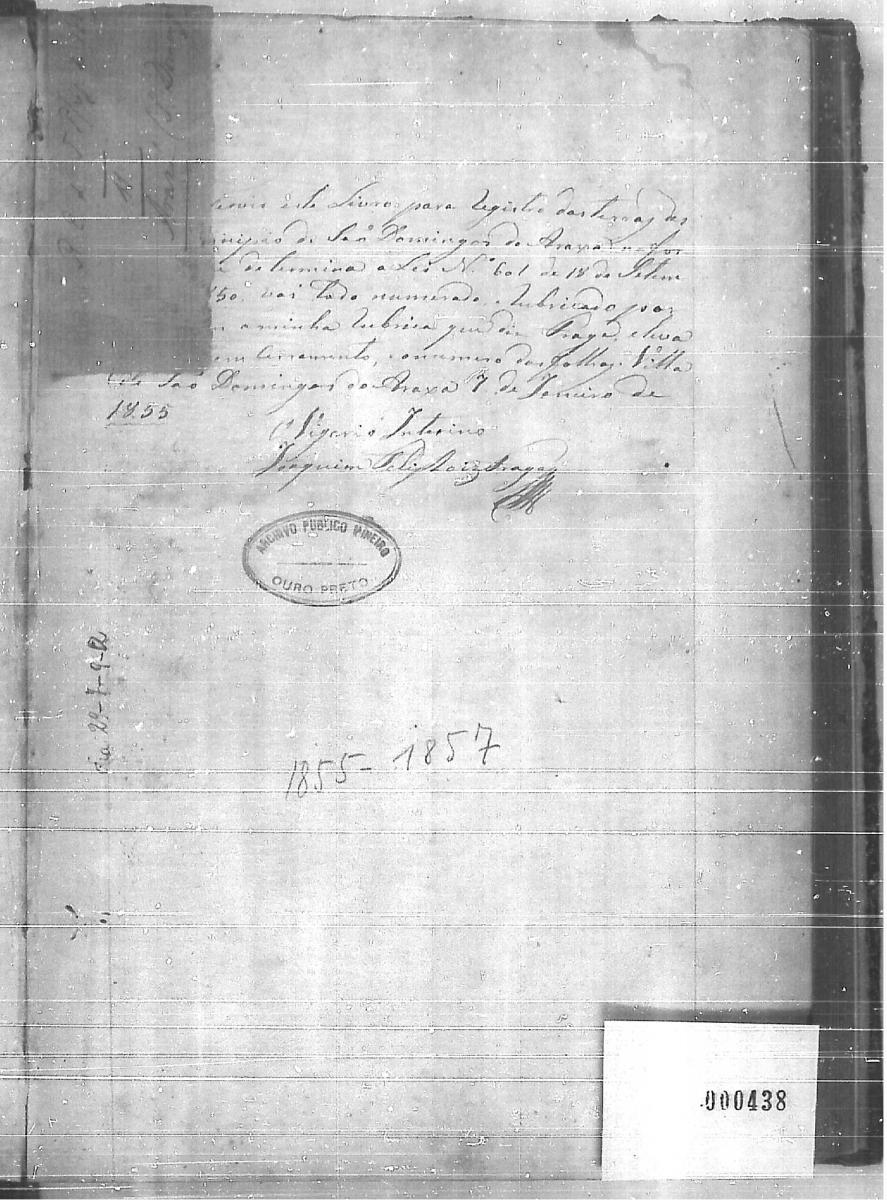 este Livro para registro das terras do
municipio de Saõ Domingos do Araxá na for
determina a Lei N.º 601 de 18 de Setem
50. vai todo numerado, e rubricado por
a minha rubrica que diz Fraga, e leva
em cerramento, o numero das folhas. Villa
de Saõ Domingos do Araxá 7 de Janeiro de
1855
O Vigario Interino
Joaquim Felis Luiz Fraga
ARCHIVO PUBLICO MINEIRO
OURO PRETO
29-7-9-12
1855-1857
000438